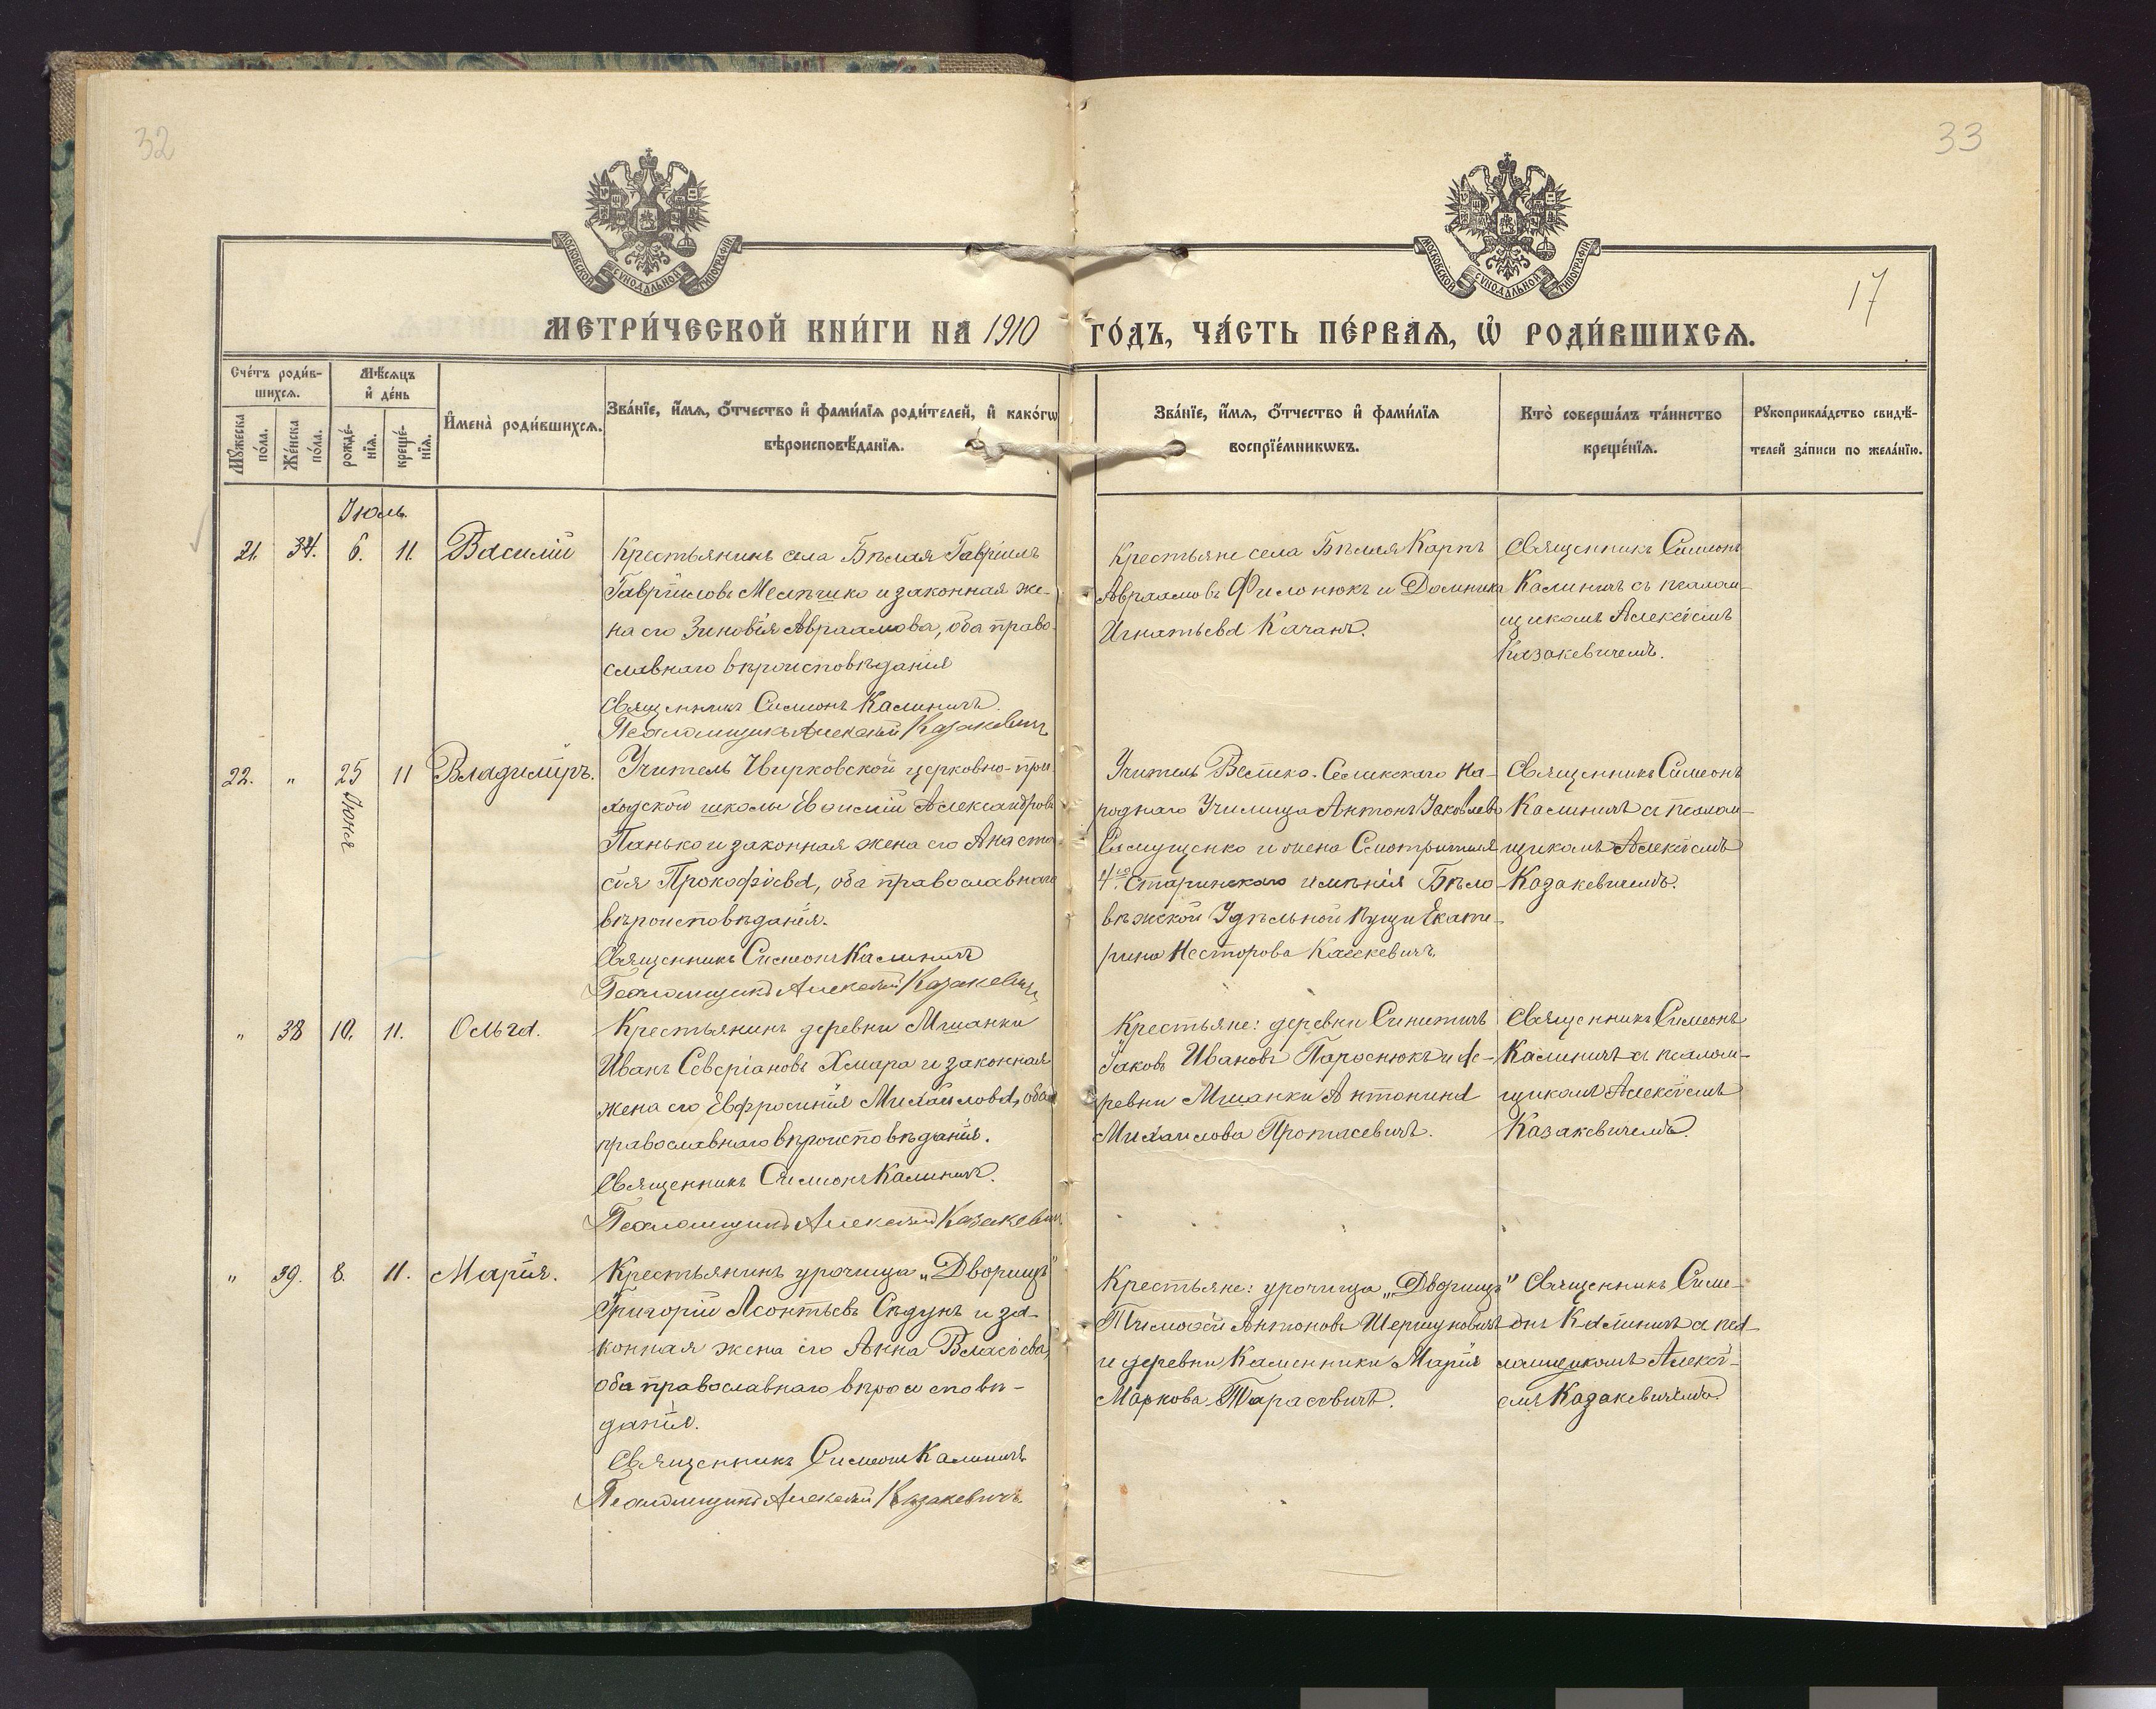 32
33
17
МОСКОВСКОЙ СѴНОДАЛЬНОЙ ТИПОГРАФІИ
МОСКОВСКОЙ СѴНОДАЛЬНОЙ ТИПОГРАФІИ
МЕТРИ́ЧЕСКОЙ КНИ́ГИ НА 1910 ГО́ДЪ, ЧА́СТЬ ПЕ́РВАѦ, Ѡ҆ РОДИ́ВШИХСѦ.
Сче́тъ роди́в-
шихсѧ.
Мꙋ́жеска
по́ла.
Же́нска
по́ла.
Мѣ́сѧцъ
и҆ де́нь
рожде́-
нїѧ.
креще́-
нїѧ.
И҆мена̀ роди́вшихсѧ.
Зва́нїе, и҆́мѧ, ѻ҆́тчество и҆ фами́лїѧ роди́телей, и҆ како́гѡ
вѣроисповѣ́данїѧ.
Зва́нїе, и҆́мѧ, ѻ҆́тчество и҆ фами́лїѧ
воспрїе́мникѡвъ.
Кто̀ соверша́лъ та́инство
креще́нїѧ.
Рꙋкоприкла́дство свидѣ́-
телей за́писи по жела́нїю.
Іюль.
21. 6. 11. Василій
Крестьянинъ села Бѣлая Гавріилъ
Гавріиловъ Мельниko и законная же-
на его Зиновія Авраамова, оба право-
славнаго вѣроисповѣданія
Священникъ Симеонъ Калининъ.
Псаломщикъ Алексѣй Казакевичъ
Крестьяне села Бѣлая Карпъ
Авраамовъ Филонюкъ и Домника
Игнатьева Качанъ.
Священникъ Симеонъ
Калининъ съ псалом-
щикомъ Алексѣемъ
Казакевичемъ.
22. " 25 Іюня 11 Владиміръ.
Учитель Чвирковской церковно-при-
ходской школы Василій Александровъ
Панько и законная жена его Анаста-
сія Прокофіева, оба православнаго
вѣроисповѣданія.
Священникъ Симеонъ Калининъ
Псаломщикъ Алексѣй Казакевичъ
Учитель Велико-Сельскаго На-
роднаго Училища Антонъ Іаковлевъ
и жена Смотрителя
4го Старинскаго имѣнія Бѣло-
вѣжской Удѣльной Пущи Екате-
рина Несторова
Священникъ Симеонъ
Калининъ съ псалом-
щикомъ Алексѣемъ
Казакевичемъ.
" 38 10. 11. Ольга.
Крестьянинъ деревни Мшанки
Иванъ Севѣріановъ Хмара и законная
жена его Евфросинія Михаилова, оба
православнаго вѣроисповѣданія.
Священникъ Симеонъ Калининъ.
Псаломщикъ Алексѣй Казакевичъ
Крестьяне: деревни Синитичъ
Іаковъ Ивановъ Пароснюкъ и де-
ревни Мшанки Антонина
Михаилова Протасевичъ.
Священникъ Симеонъ
Калининъ съ псалом-
щикомъ Алексѣемъ
Казакевичемъ.
" 39. 8. 11. Марія.
Крестьянинъ урочища „Дворищъ"
Григорій Леонтьевъ Сѣдунъ и за-
конная жена его Анна Власіева,
оба православнаго вѣроисповѣ-
данія.
Священникъ Симеонъ Калининъ
Псаломщикъ Алексѣй Казакевичъ.
Крестьяне: урочища „Дворищъ"
Тимоѳей Антоновъ Шершуновичъ
и деревни Каменники Марія
Маркова Тарасевичъ.
Священникъ Симе-
онъ Калининъ съ пса-
ломщикомъ Алексѣ-
емъ Казакевичемъ.